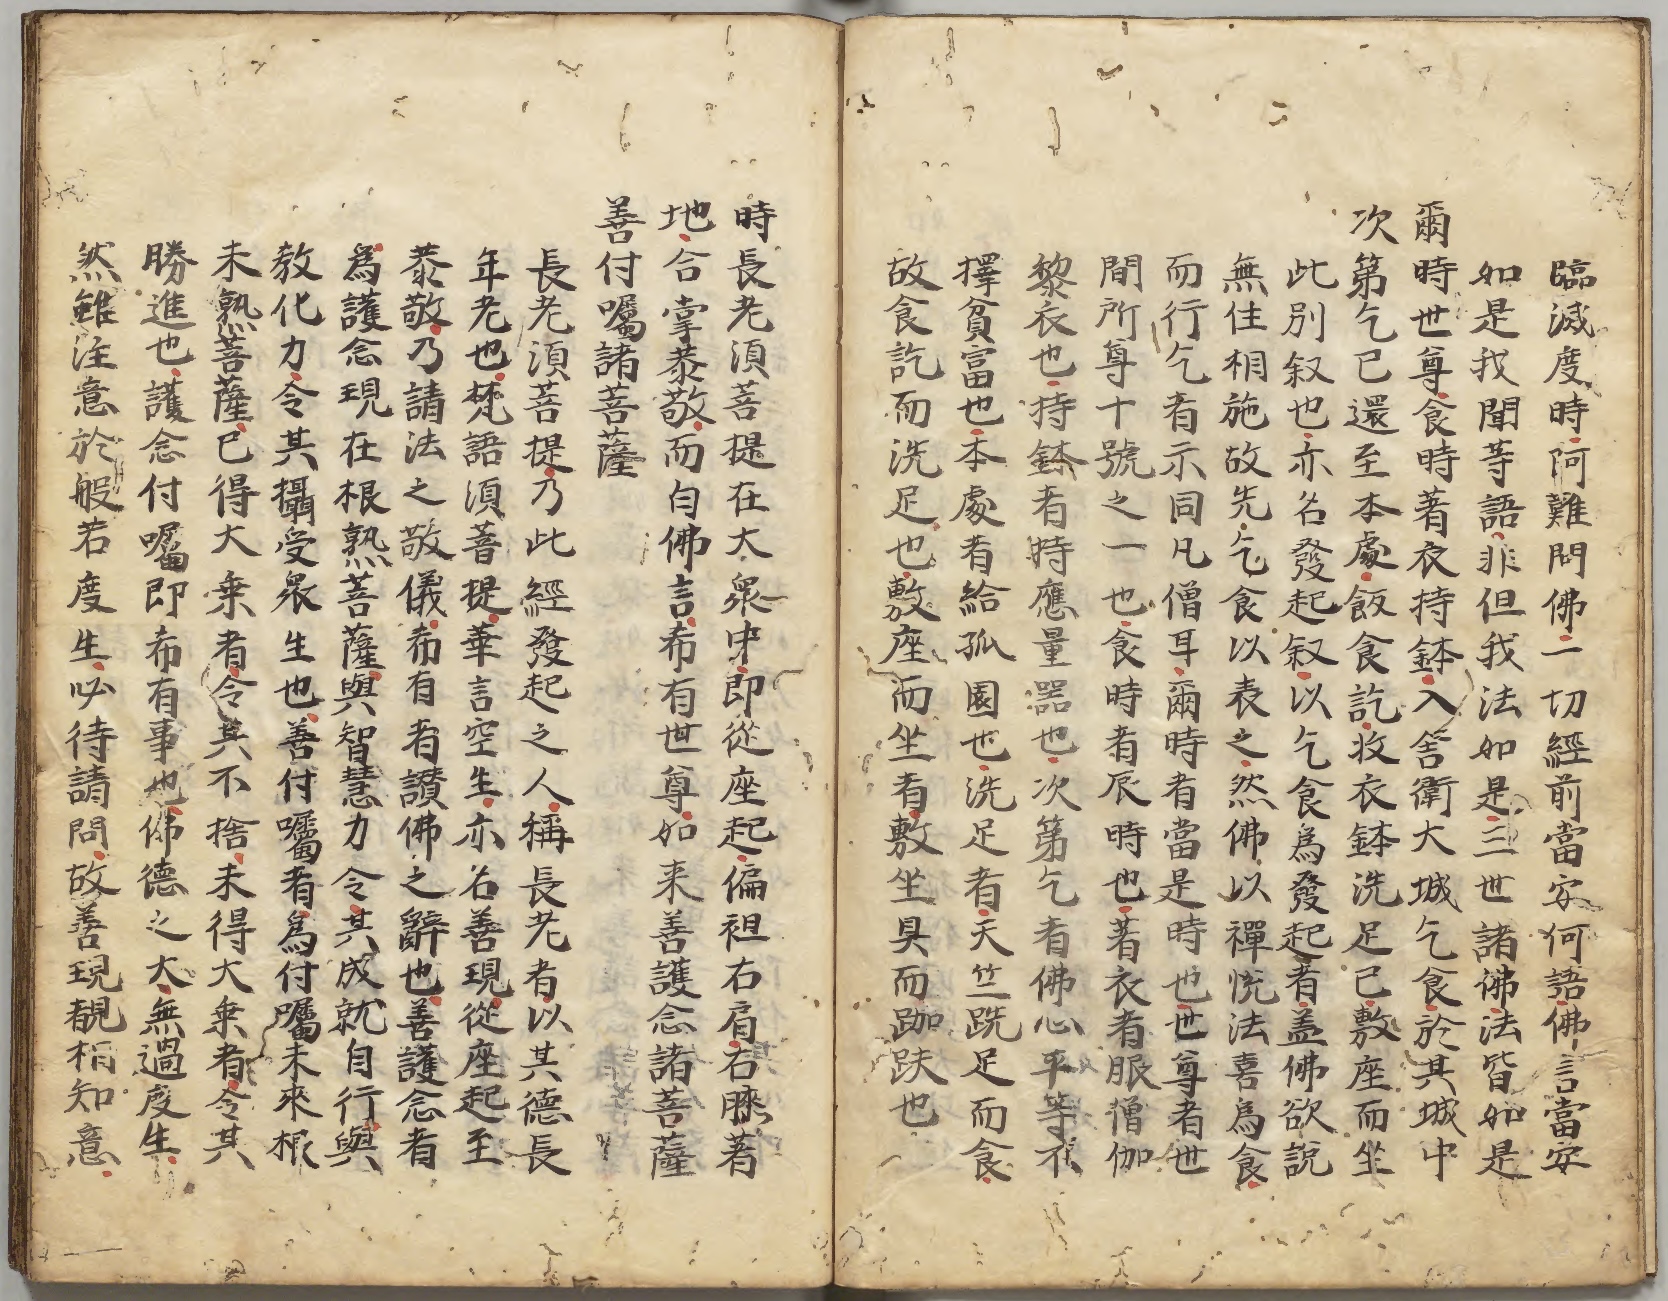 臨滅度時阿難問佛一切經前當安何語佛言當安
如是我聞等語非但我法如是三世諸佛法皆如是
爾時世尊食時著衣持鉢入舍衛大城乞食於其城中
次第乞已還至本處飯食訖收衣鉢洗足已敷座而坐
此別叙也亦名發起叙以乞食為發起者盖佛欲說
無住相施故先乞食以表之然佛以禪悅法喜為食
而行乞者示同凡僧耳爾時者當是時也世尊者世
間所尊十號之一也食時者辰時也著衣者服僧伽
黎衣也持鉢者時應量器也次第乞者佛心平等不
擇貧富也本處者給孤園也洗足者天竺跣足而食
故食訖而洗足也敷座而坐者敷坐具而跏趺也
時長老須菩提在大衆中即從座起偏袒右肩右膝著
地合掌恭敬而白佛言希有世尊如来善護念諸菩薩
善付囑諸菩薩
長老須菩提乃此經發起之人稱長老者以其德長
年老也梵語須菩提華言空生亦名善現從座起至
恭敬乃請法之敬儀希有者讃佛之辭也善護念者
為護念現在根熟菩薩與智慧力令其成就自行與
教化力令其攝受衆生也善付囑者為付囑未來根
未熟菩薩已得大乗者令其不捨未得大乗者令其
勝進也護念付囑即希有事也佛德之大無過度生
然雖注意於般若度生必待請問故善現覩相知意